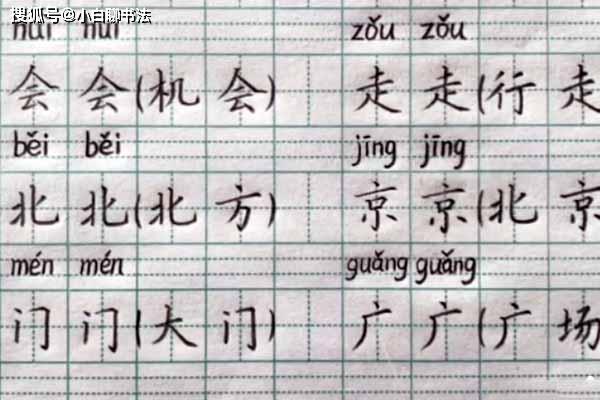 搜狐号@小白聊书法
huì huì zǒu zǒu
会 会(机 会) 走 走(行 走
běi běi jīng jīng
北 北(北 方) 京 京(北 京
mén mén guǎng guǎng
门 门(大 门) 广 广(广 场